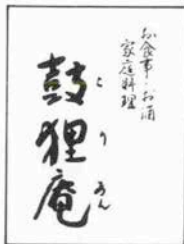 お食事・お酒
家庭料理
鼓狸庵
こりあん